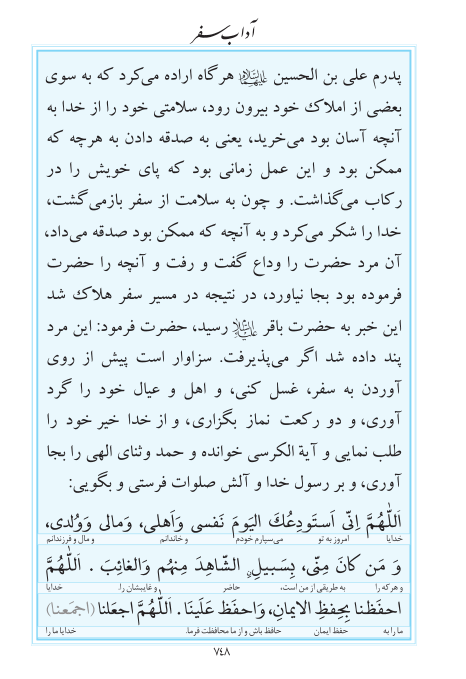 آداب سفر
پدرم علی بن الحسین علیهما‌السلام هرگاه اراده می‌کرد که به سوی
بعضی از املاک خود بیرون رود، سلامتی خود را از خدا به
آنچه آسان بود می‌خرید، یعنی به صدقه دادن به هرچه که
ممکن بود و این عمل زمانی بود که پای خویش را در
رکاب می‌گذاشت. و چون به سلامت از سفر بازمی‌گشت،
خدا را شکر می‌کرد و به آنچه که ممکن بود صدقه می‌داد،
آن مرد حضرت را وداع گفت و رفت و آنچه را حضرت
فرموده بود بجا نیاورد، در نتیجه در مسیر سفر هلاک شد
این خبر به حضرت باقر علیه‌السلام رسید، حضرت فرمود: این مرد
پند داده شد اگر می‌پذیرفت. سزاوار است پیش از روی
آوردن به سفر، غسل کنی، و اهل و عیال خود را گرد
آوری، و دو رکعت نماز بگزاری، و از خدا خیر خود را
طلب نمایی و آیة الکرسی خوانده و حمد وثنای الهی را بجا
آوری، و بر رسول خدا و آلش صلوات فرستی و بگویی:
اَللّٰهُمَّ اِنّی اَستَودِعُكَ الیَومَ نَفسی وَاَهلی، وَمالی وَوُلدی،
خدایا امروز به تو می‌سپارم خودم و خاندانم و مال و فرزندانم
وَ مَن كانَ مِنّی، بِسَبیلٍ الشّاهِدَ مِنهُم وَالغائِبَ . اَللّٰهُمَّ
و هر که را به طریقی از من است، حاضر و غایبشان را. خدایا
احفَظنا بِحِفظِ الایمانِ، وَاحفَظ عَلَینَا. اَللّٰهُمَّ اجعَلنا (اجمَعنا)
ما را به حفظ ایمان حافظ باش و از ما محافظت فرما. خدایا ما را
۷۴۸